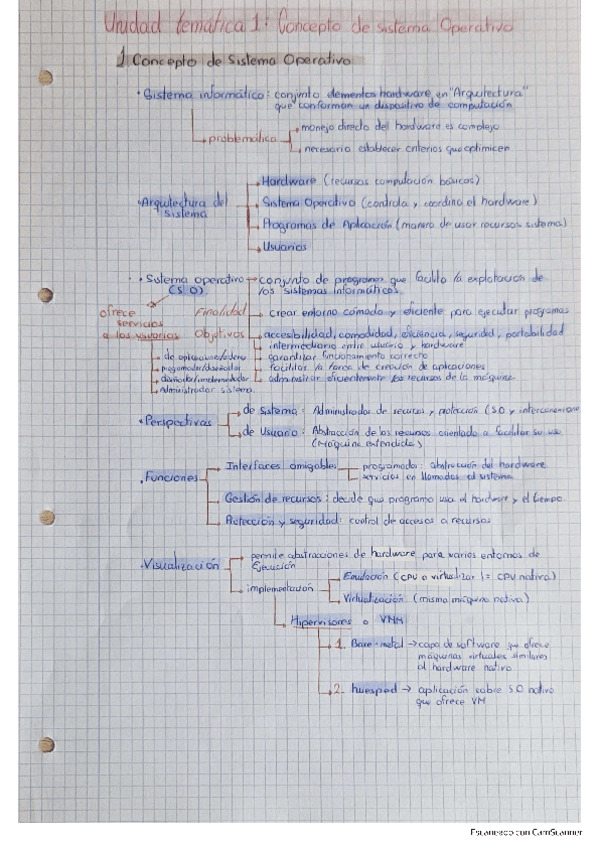 Unidad temática 1: Concepto de Sistema Operativo
1 Concepto de Sistema Operativo
· Sistema informático: conjunto elementos hardware en "Arquitectura"
que conforman un dispositivo de computación
problemática
manejo directo del hardware es complejo
necesario establecer criterios que optimicen
· Arquitectura del
sistema
Hardware (recursos computación básicos)
Sistema Operativo (controla y coordina el hardware)
Programas de Aplicación (manera de usar recursos sistema)
Usuarios
· Sistema operativo
(S.O)
conjunto de programas que facilita la explotación de
los sistemas informáticos.
ofrece
servicios
a los usuarios
Finalidad
crear entorno cómodo y eficiente para ejecutar programas
Objetivos
accesibilidad, comodidad, eficiencia, seguridad, portabilidad
intermediario entre usuario y hardware
garantizar funcionamiento correcto
facilitar la tarea de creación de aplicaciones
administrar eficientemente los recursos de la máquina
de aplicaciones/
programador/diseñador
diseñador/
administrador sistema
· Perspectivas
de Sistema: Administrador de recursos y protección (S.O y
de Usuario: Abstracción de los recursos orientado a facilitar su uso
(Máquina extendida)
· Funciones
Interfaces amigables
programador: abstracción del hardware
servicios en llamadas al sistema
Gestión de recursos: decide que programa usa el hardware y el tiempo
Protección y seguridad: control de accesos a recursos
· Visualización
permite abstracciones de hardware para varios entornos de
Ejecución
implementación
Emulación (CPU a virtualizar != CPU nativa)
Virtualización (misma máquina nativa)
Hipervisores o VMM
1. Bare-metal → capa de software que ofrece
máquinas virtuales similares
al hardware nativo
2. huesped → aplicación sobre S.O nativo
que ofrece VM
Escaneado con CamScanner